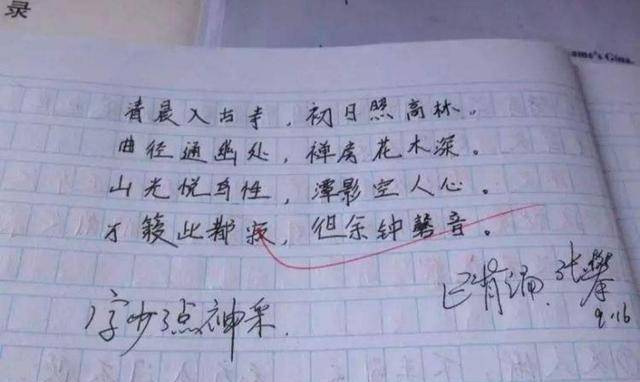 录
ame's Gina.
清晨入古寺，初日照高林。
曲径通幽处，禅房花木深。
山光悦鸟性，潭影空人心。
万籁此都寂，但余钟磬音。
已背诵。张攀
9.16
字少了点神采.